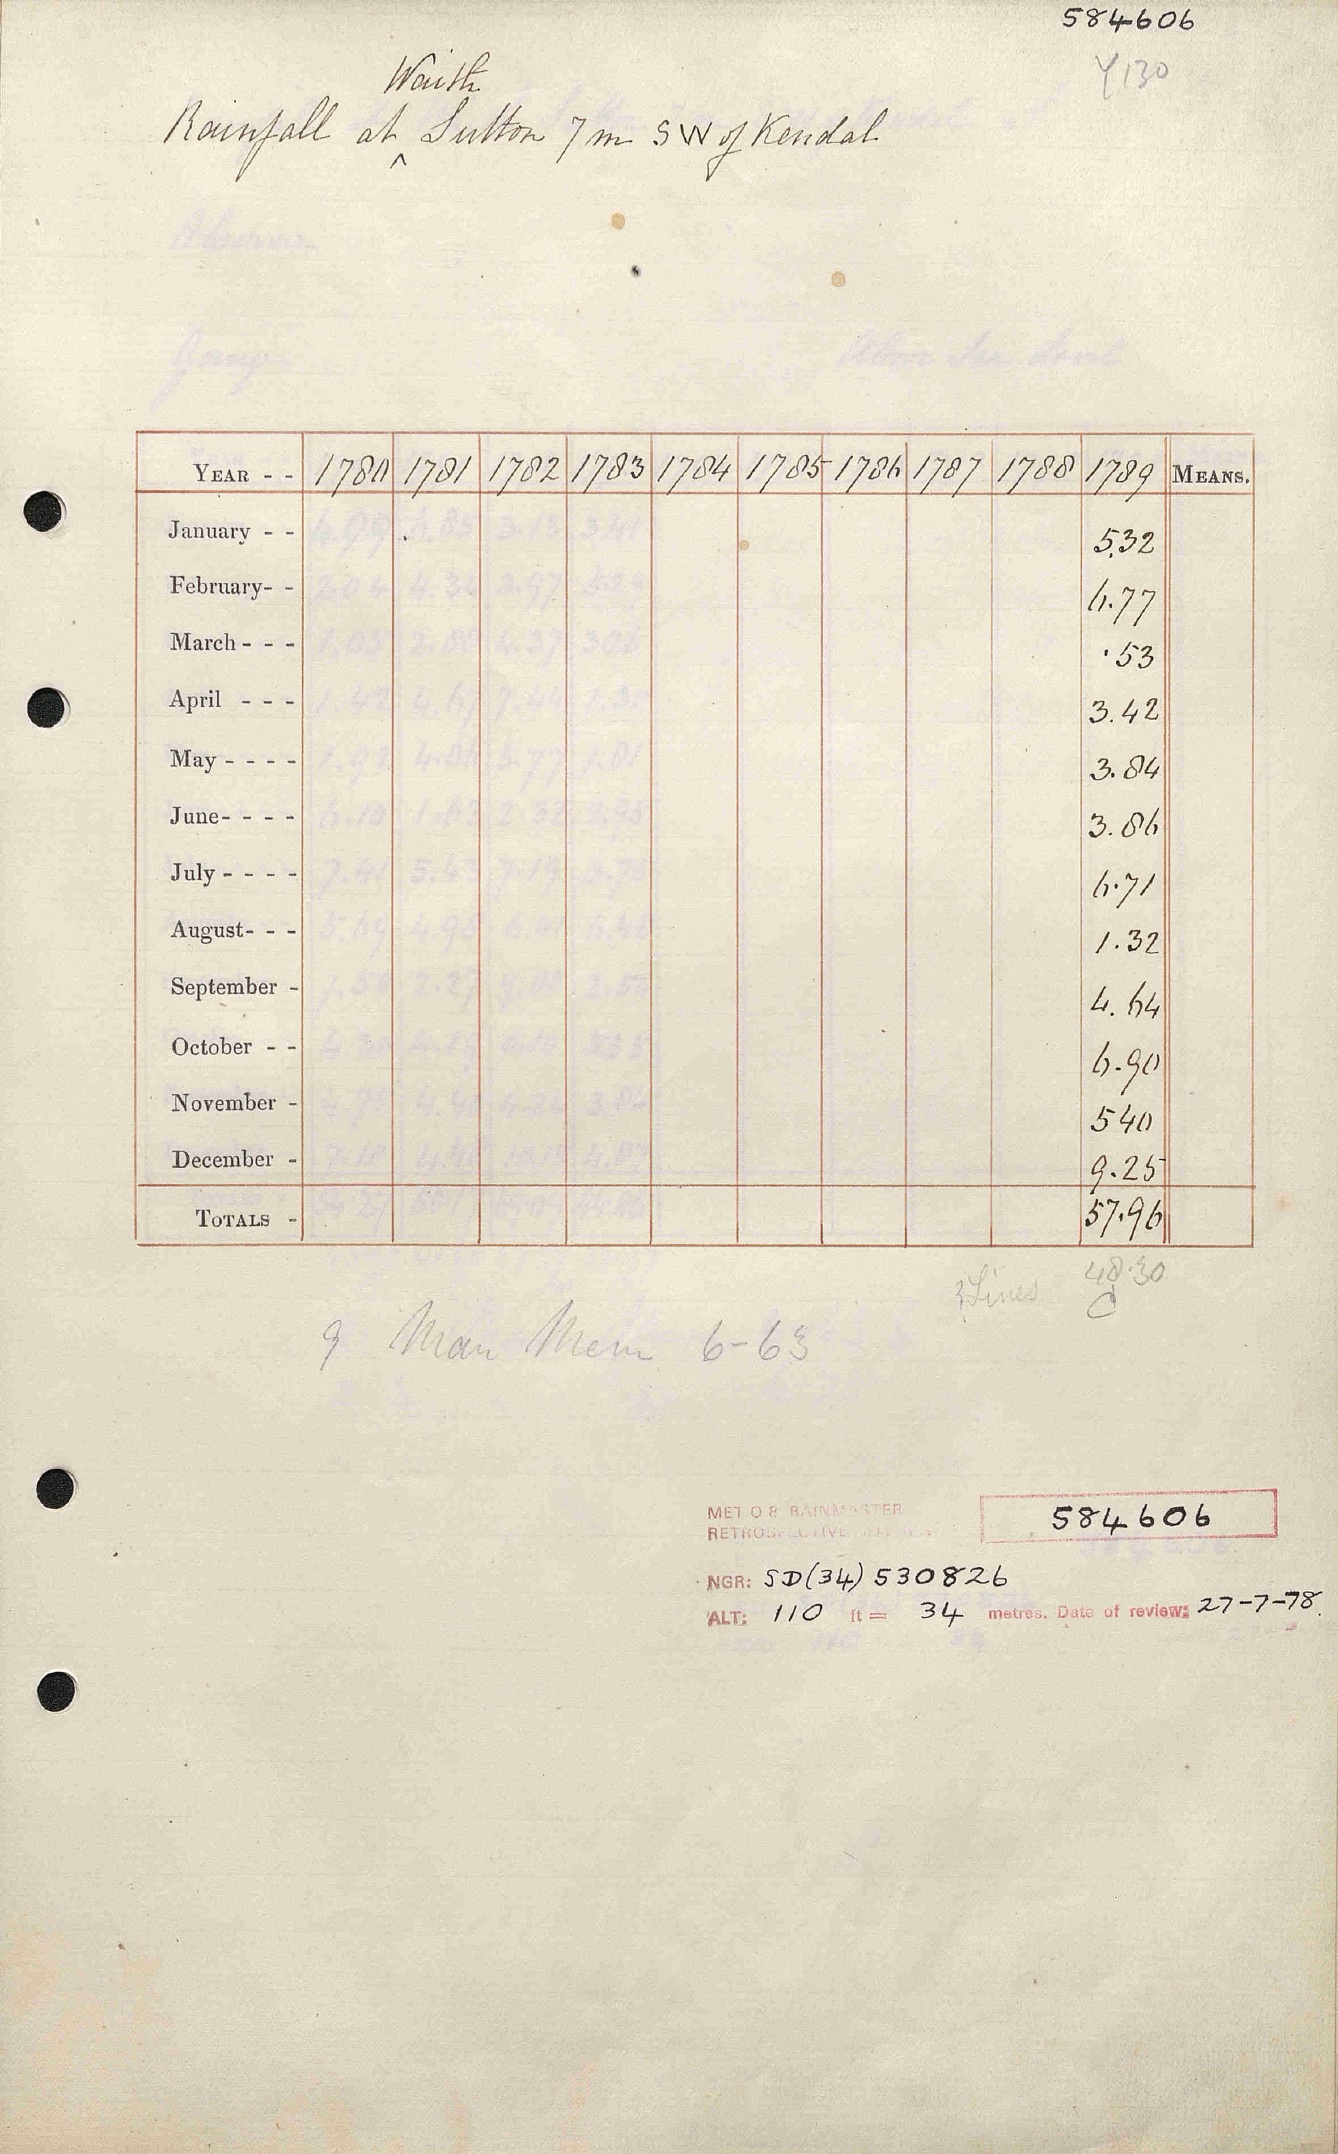 584606
Y130
Waith
Rainfall at ^ Sutton 7 m SW of Kendal
YEAR - - 1780 1781 1782 1783 1784 1785 1786 1787 1788 1789 MEANS.
January - - 5.32
February- - 6.77
March - - - .53
April - - - 3.42
May - - - - 3.84
June- - - - 3.86
July - - - - 6.71
August- - - 1.32
September - 4.64
October - - 6.90
November - 540
December - 9.25
TOTALS - 57.96
Lines 48.30
C
9 Man Mem 6-63
MET O 8 RAINMASTER
RETROSPECTIVE
584606
NGR: SD(34) 530826
ALT: 110 ft = 34 metres. Date of review: 27-7-78.